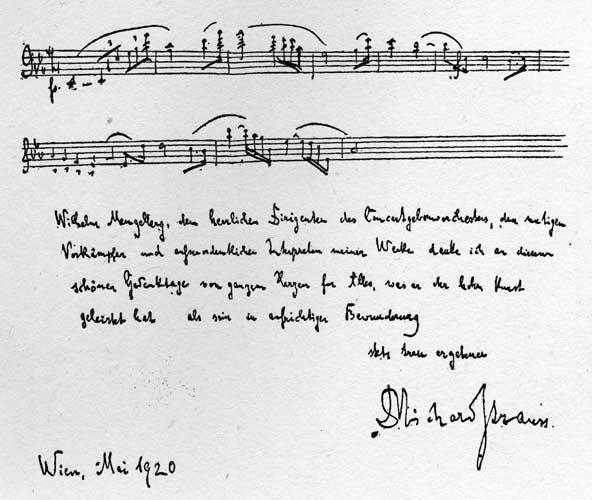 Wilhelm Mengelberg, dem herrlichen Dirigenten des Concertgebouworchesters, dem mutigen
Vorkämpfer und außerordentlichen Interpreten meiner Werke danke ich an diesem
schönen Gedenktage von ganzem Herzen for Alles, was er der hohen Kunst
geleistet hat als sein in aufrichtiger Bewunderung
stets treu ergebener
Dr Richard Strauss.
Wien, Mai 1920